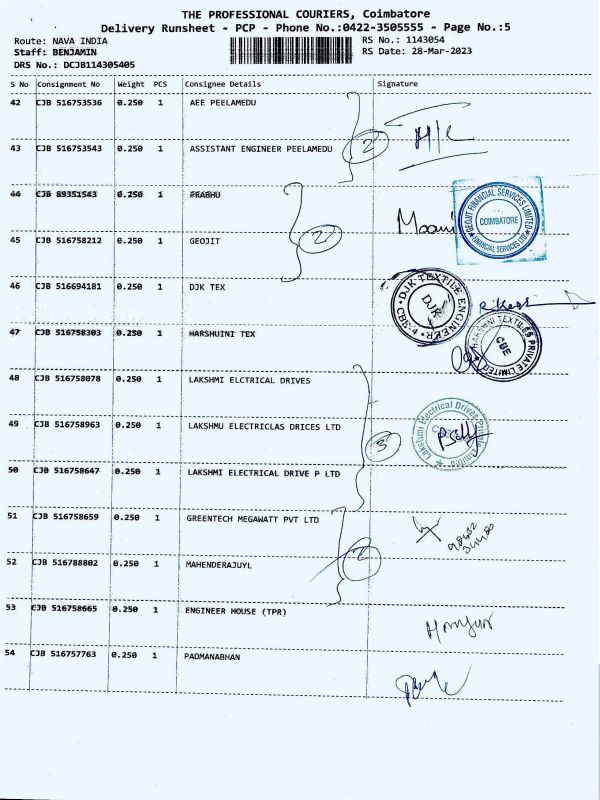 THE PROFESSIONAL COURIERS, Coimbatore
Delivery Runsheet - PCP - Phone No.:0422-3505555 - Page No.:5
Route: NAVA INDIA
RS No.: 1143054
Staff: BENJAMIN
RS Date: 28-Mar-2023
DRS No.: DCJB114305405
S No Consignment No Weight PCS Consignee Details Signature
42 CJB 516753536 0.250 1 AEE PEELAMEDU
43 CJB 516753543 0.250 1 ASSISTANT ENGINEER PEELAMEDU
2
H/C
44 CJB 89351543 0.250 1 PRABHU
45 CJB 516758212 0.250 1 GEOJIT
2
GEOJIT FINANCIAL SERVICES LIMITED
COIMBATORE
46 CJB 516694181 0.250 1 DJK TEX
DJK TEXTILE ENGINEER
DJK
CBE-4
47 CJB 516758303 0.250 1 HARSHUINI TEX
TEXTILES PRIVATE LIMITED
CBE
48 CJB 516758078 0.250 1 LAKSHMI ELCTRICAL DRIVES
49 CJB 516758963 0.250 1 LAKSHMU ELECTRICLAS DRICES LTD
3
Lakshmi Electrical Drives Private Limited
50 CJB 516758647 0.250 1 LAKSHMI ELECTRICAL DRIVE P LTD
51 CJB 516758659 0.250 1 GREENTECH MEGAWATT PVT LTD
52 CJB 516788802 0.250 1 MAHENDERAJUYL
2
53 CJB 516758665 0.250 1 ENGINEER HOUSE (TPR)
54 CJB 516757763 0.250 1 PADMANABHAN